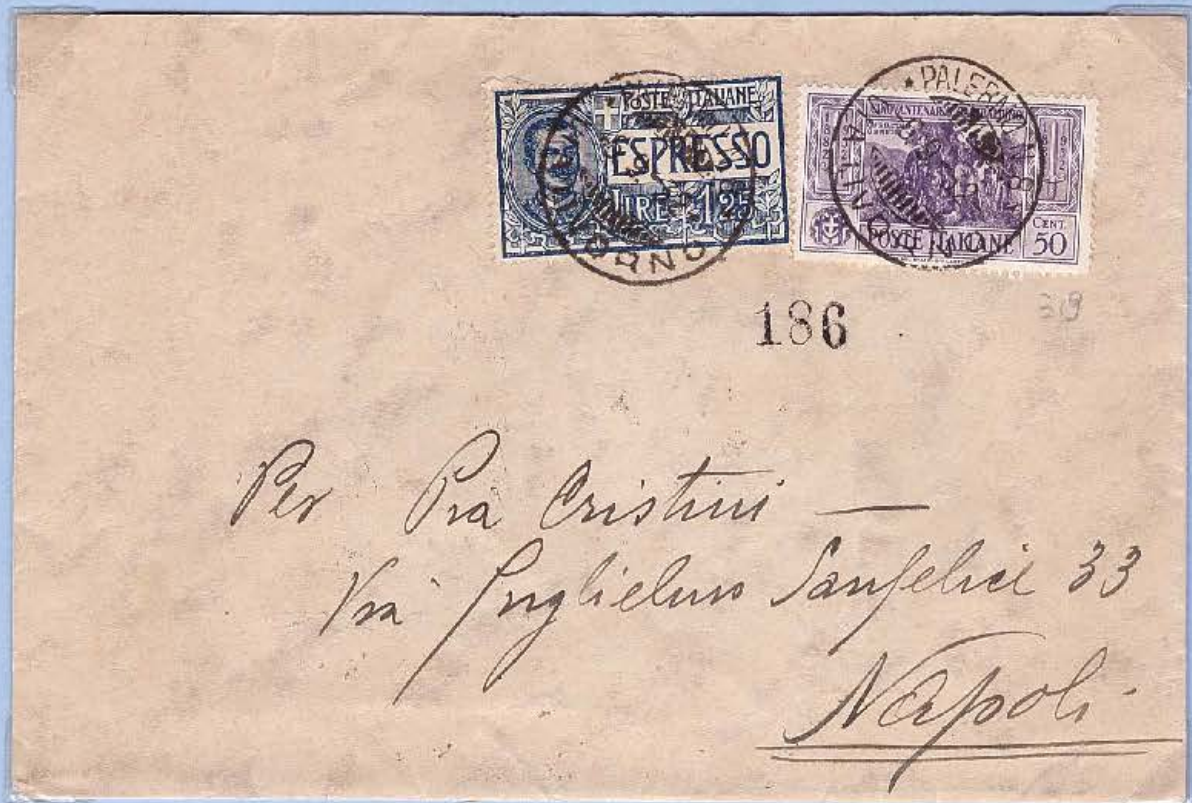 POSTE ITALIANE
ESPRESSO
LIRE 1,25
★ PALERMO
POSTE ITALIANE
CENT.
50
186
319
Per Pia Cristini —
Via Guglielmo Sanfelice 33
Napoli